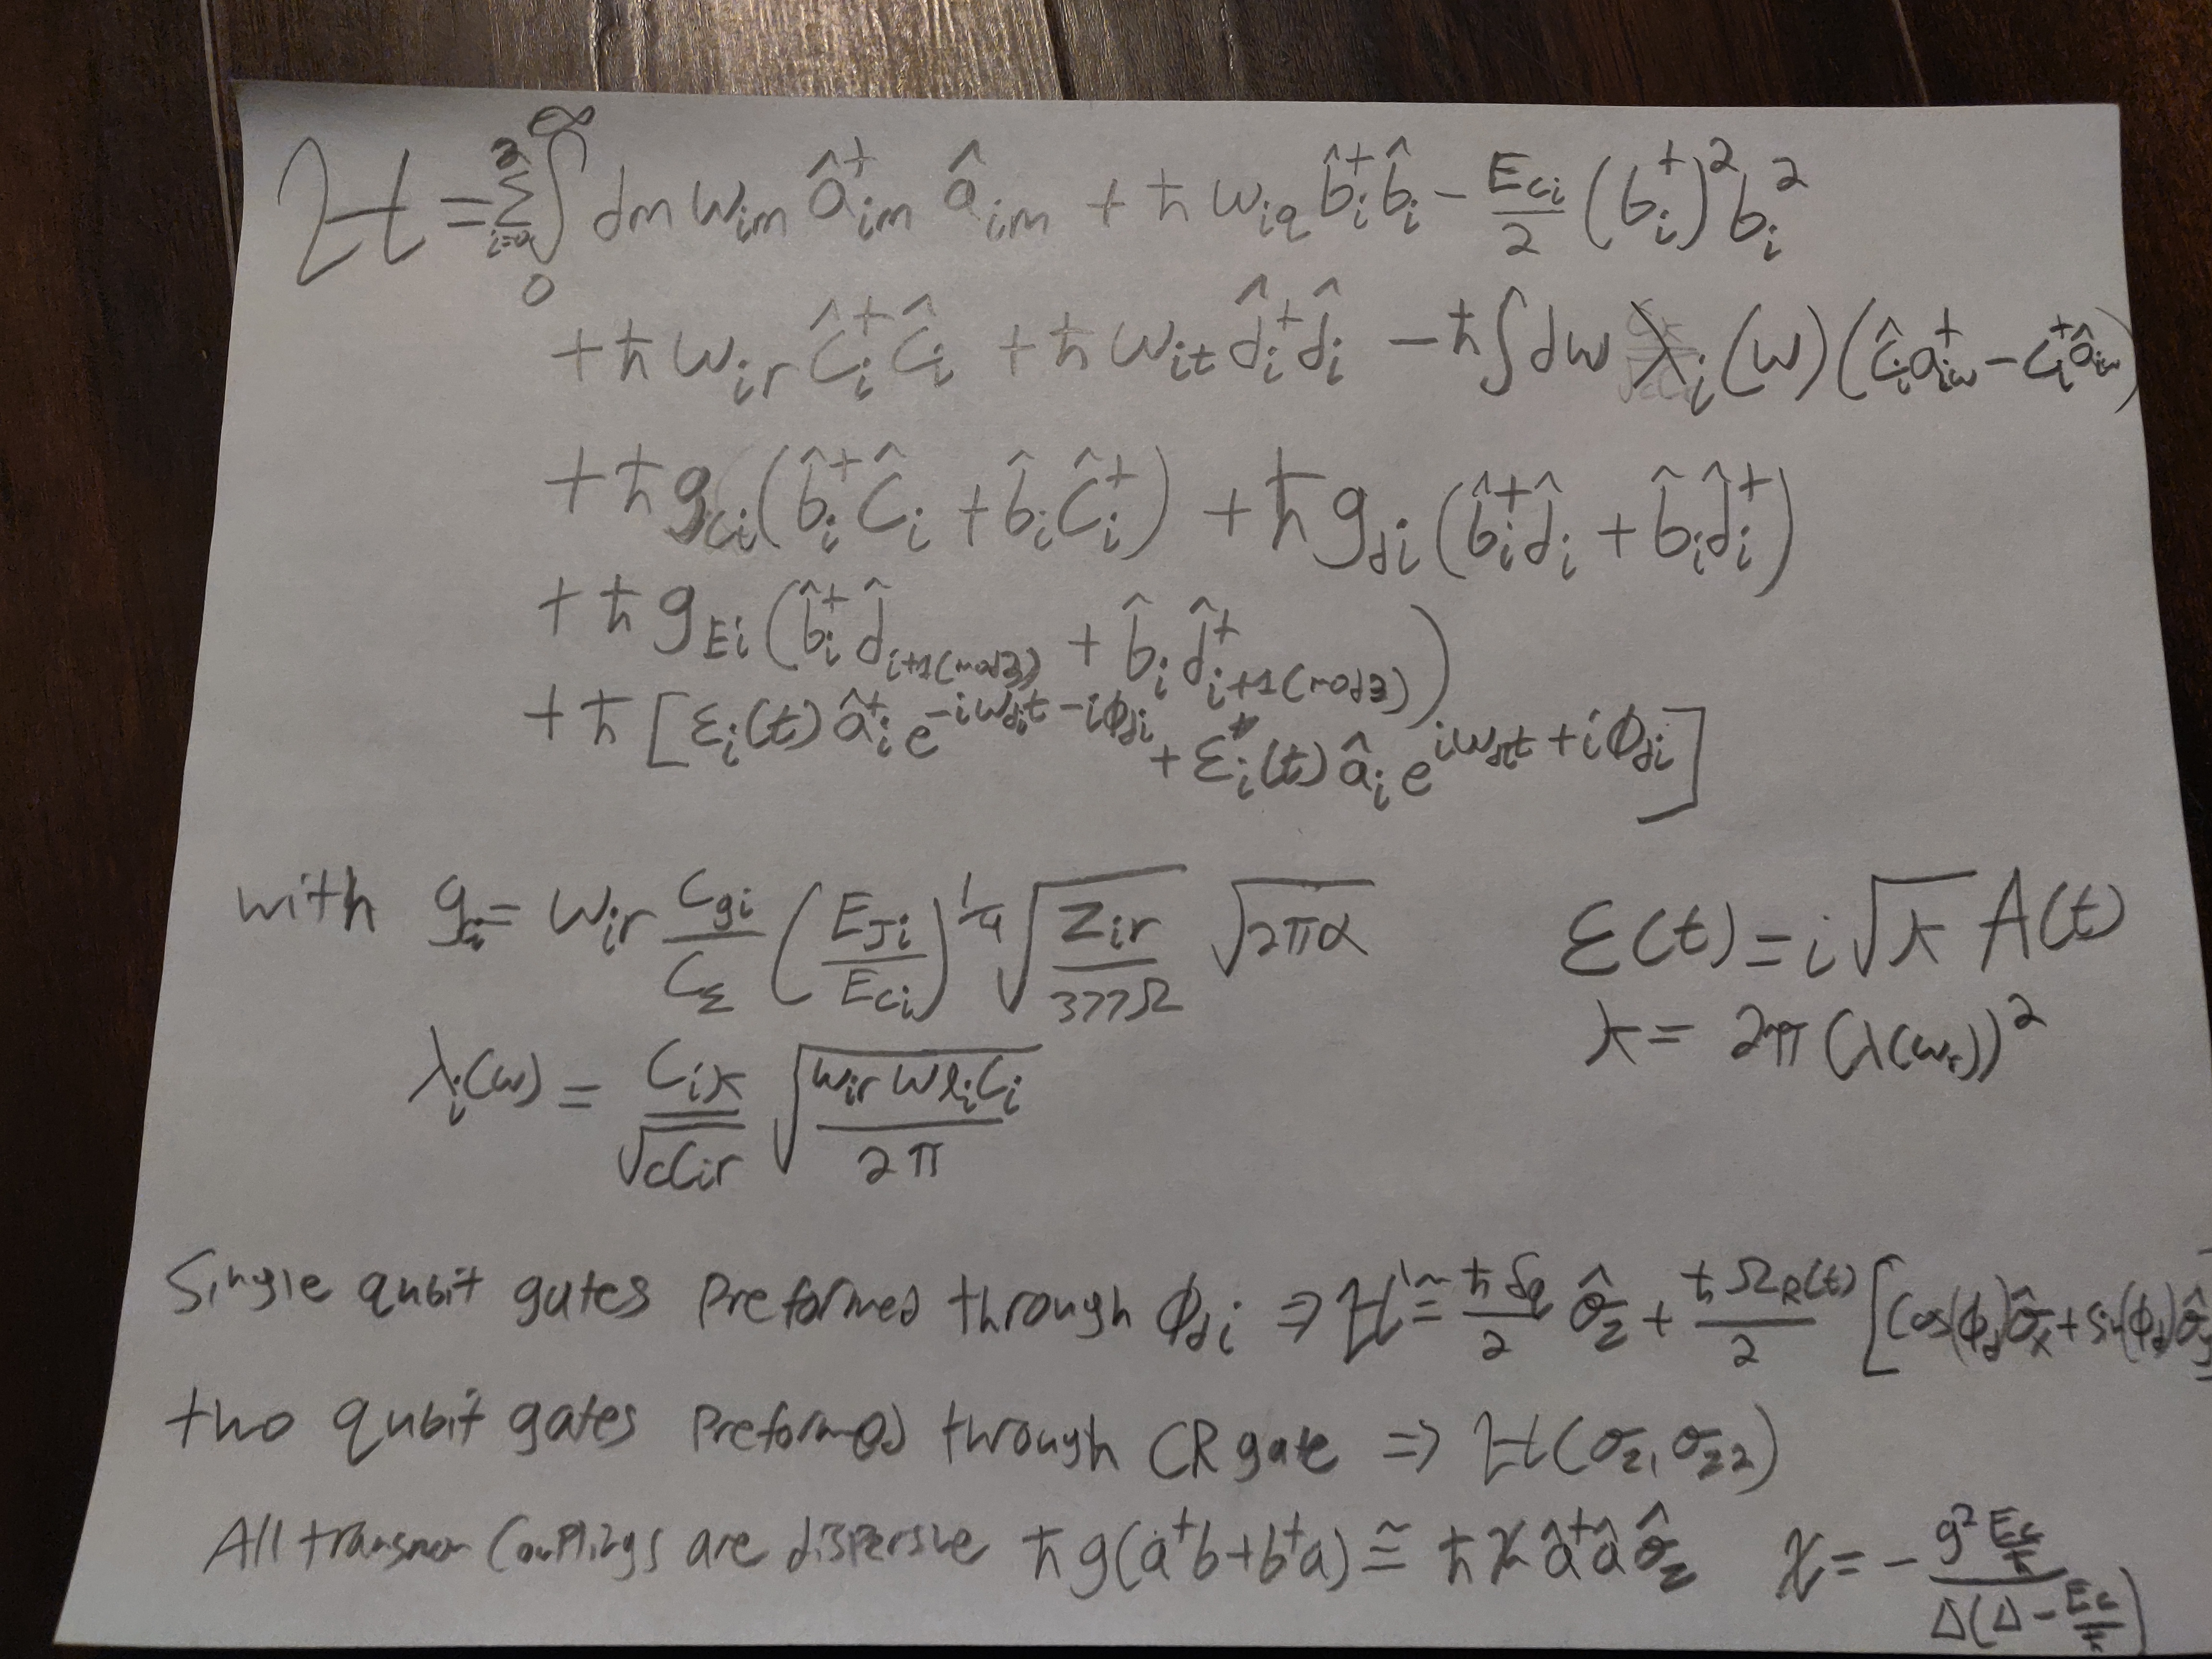 H = Σ_{i=0}^{2} ∫_0^∞ dm ω_{im} â†_{im} â_{im} + ħ ω_{iq} b̂†_i b̂_i − E_{ci}/2 (b†_i)² b_i²
+ ħ ω_{ir} ĉ†_i ĉ_i + ħ ω_{it} d̂†_i d̂_i − ħ ∫ dω λ_i(ω) (ĉ_i a†_{iω} − c†_i â_{iω})
+ ħ g_{ci} (b̂†_i ĉ_i + b̂_i ĉ†_i) + ħ g_{di} (b̂†_i d̂_i + b̂_i d̂†_i)
+ ħ g_{Ei} (b̂†_i d̂_{i+1(mod3)} + b̂_i d̂†_{i+1(mod3)})
+ ħ [ε_i(t) â†_i e^{−iω_{di}t − iϕ_{di}} + ε*_i(t) â_i e^{iω_{di}t + iϕ_{di}}]
with g_i = ω_{ir} C_{gi}/C_Σ (E_{Ji}/E_{ci})^{1/4} √(Z_{ir}/377Ω) √(2πα)
ε(t) = i√κ A(t)
κ = 2π (λ(ω_r))²
λ_i(ω) = C_{iκ}/√(cC_{ir}) √(ω_{ir} ω l_i C_i / 2π)
Single qubit gates Preformed through ϕ_{di} ⇒ H' ≃ ħδ_q/2 σ̂_z + ħΩ_R(t)/2 [cos(ϕ_d)σ̂_x + sin(ϕ_d)σ̂_y
two qubit gates Preformed through CR gate ⇒ H(σ_{z1} σ_{z2})
All transmon Couplings are dispersive ħg(a†b + b†a) ≅ ħ χ â†â σ̂_z χ = − (g² E_c/ħ) / (Δ(Δ − E_c/ħ))